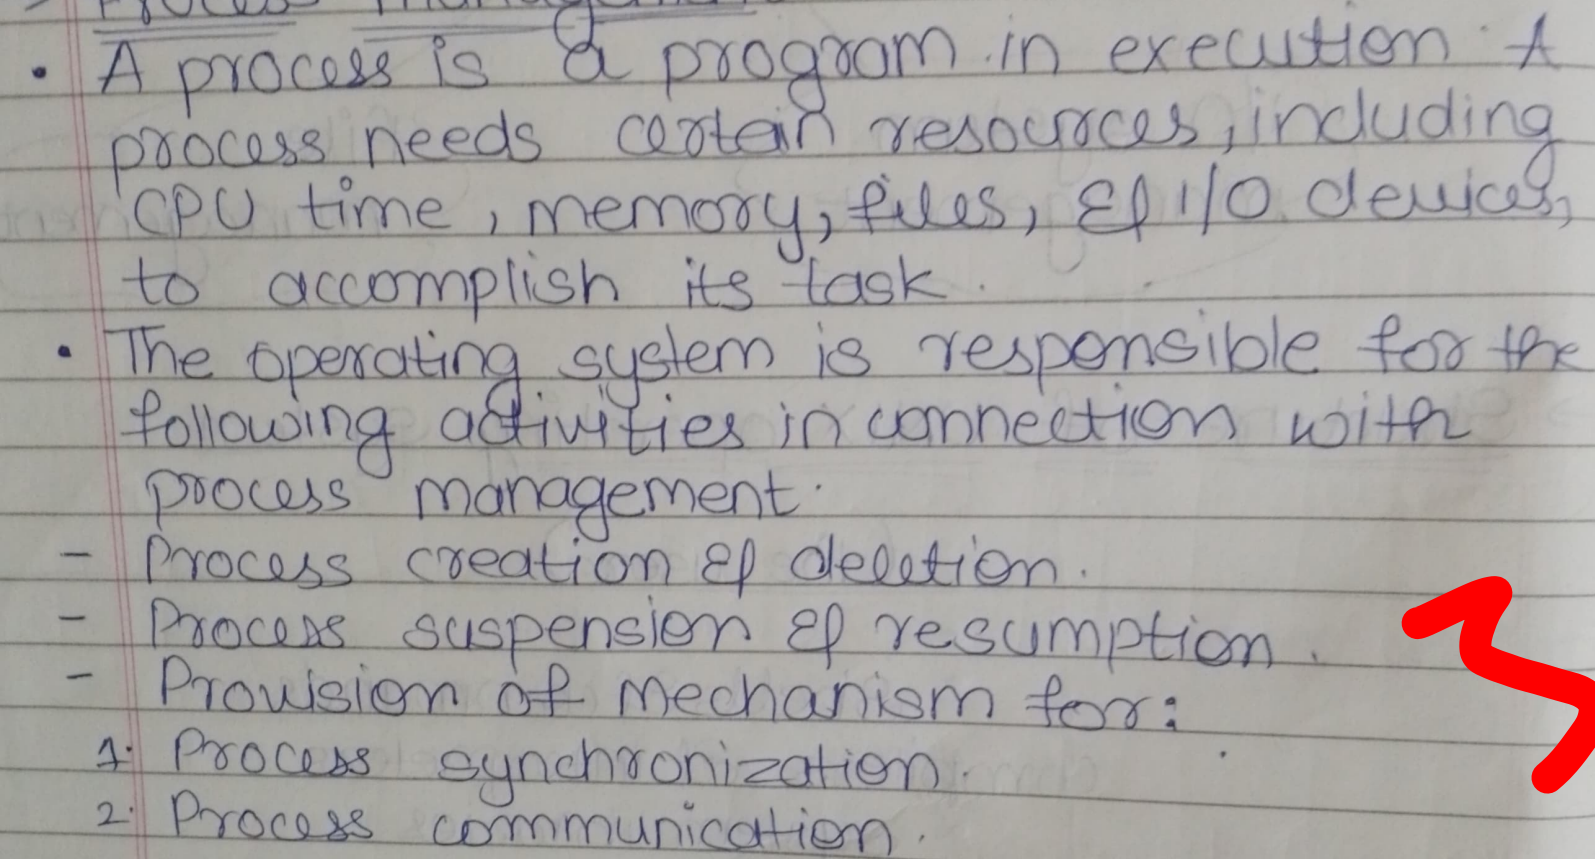 Process Management
• A process is a program in execution. A
process needs certain resources, including
CPU time, memory, files, & I/O devices,
to accomplish its task.
• The operating system is responsible for the
following activities in connection with
process management.
- Process creation & deletion.
- Process suspension & resumption.
- Provision of mechanism for:
1. Process synchronization.
2. Process communication.